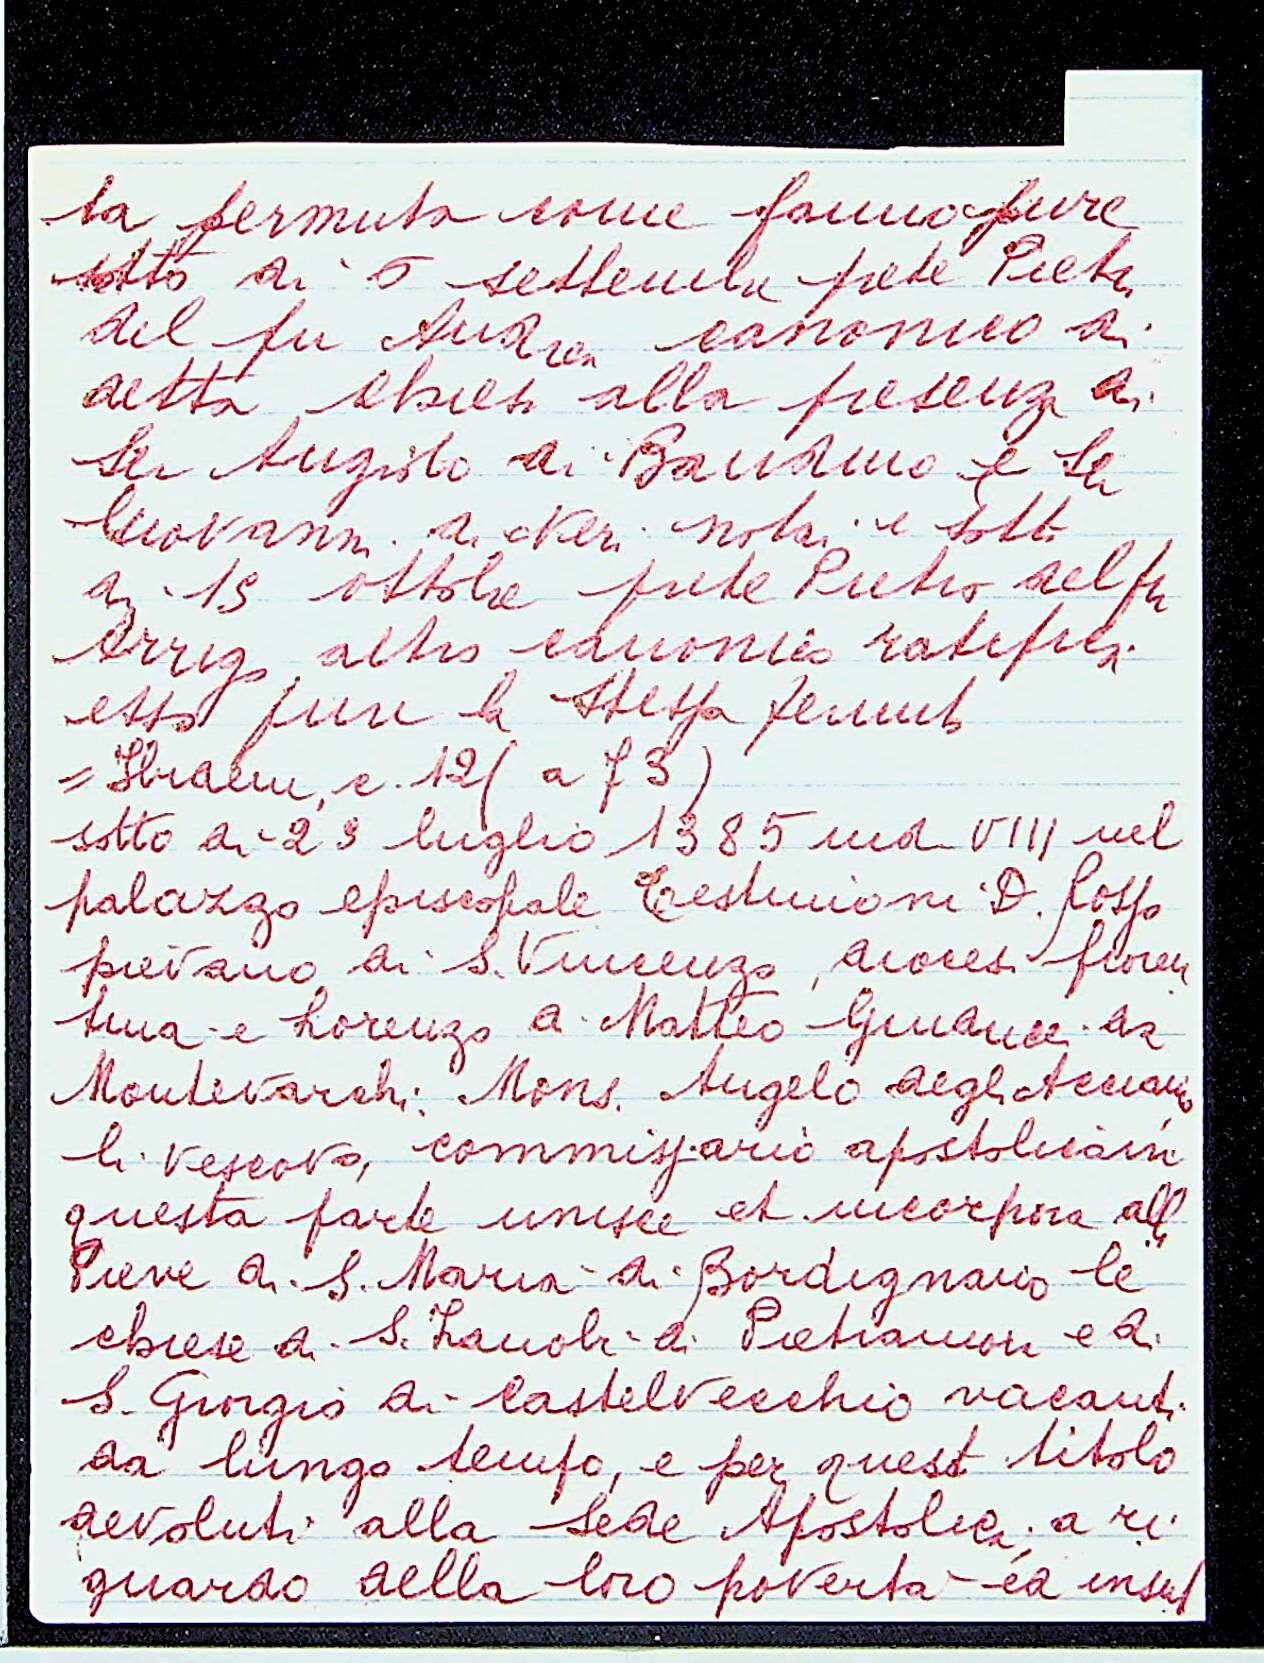 la permuta come fanno pure
sotto dì 5 settembre prete Pietro
del fu Andrea canonico di
detta chiesa alla presenza di
Ser Angiolo di Bandino e Ser
Giovanni di Neri notai e sotto
dì 19 ottobre prete Pietro del fu
Arrigo altro canonico ratifica
esso pure la stessa permuta
= Ibidem, c. 12 ( a 73)
sotto dì 23 luglio 1385 ind. VIII nel
palazzo episcopale Testimoni D. Rosso
pievano di S. Vincenzo, diocesi fioren
tina e Lorenzo di Matteo da
Montevarchi. Mons. Angelo degli Acciaio
li vescovo, commissario apostolico in
questa parte unisce et incorpora alla
Pieve di S. Maria di Bordignano le
chiese di S. Zanobi di Pietramora e di
S. Giorgio di Castelvecchio vacanti
da lungo tempo, e per questo titolo
devoluti alla Sede Apostolica, a ri
guardo della loro povertà ed insuf